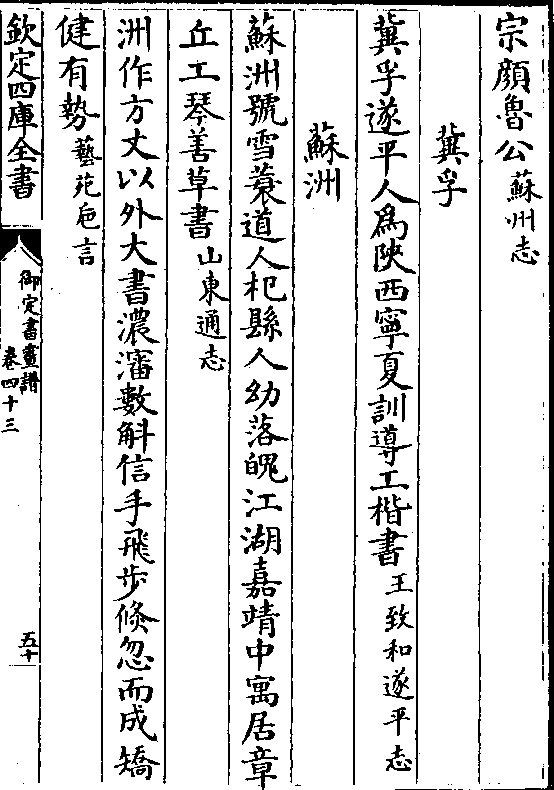 宗顔魯公蘇州志
冀孚
冀孚遂平人爲陜西寧夏訓導工楷書王致和遂平志
蘇洲
蘇洲號雪蓑道人杞縣人幼落魄江湖嘉靖中寓居章
丘工琴善草書山東通志
洲作方丈以外大書濃瀋數斛信手飛步倐忽而成矯
健有勢藝苑巵言
欽定四庫全書
御定書畫譜
卷四十三
五十